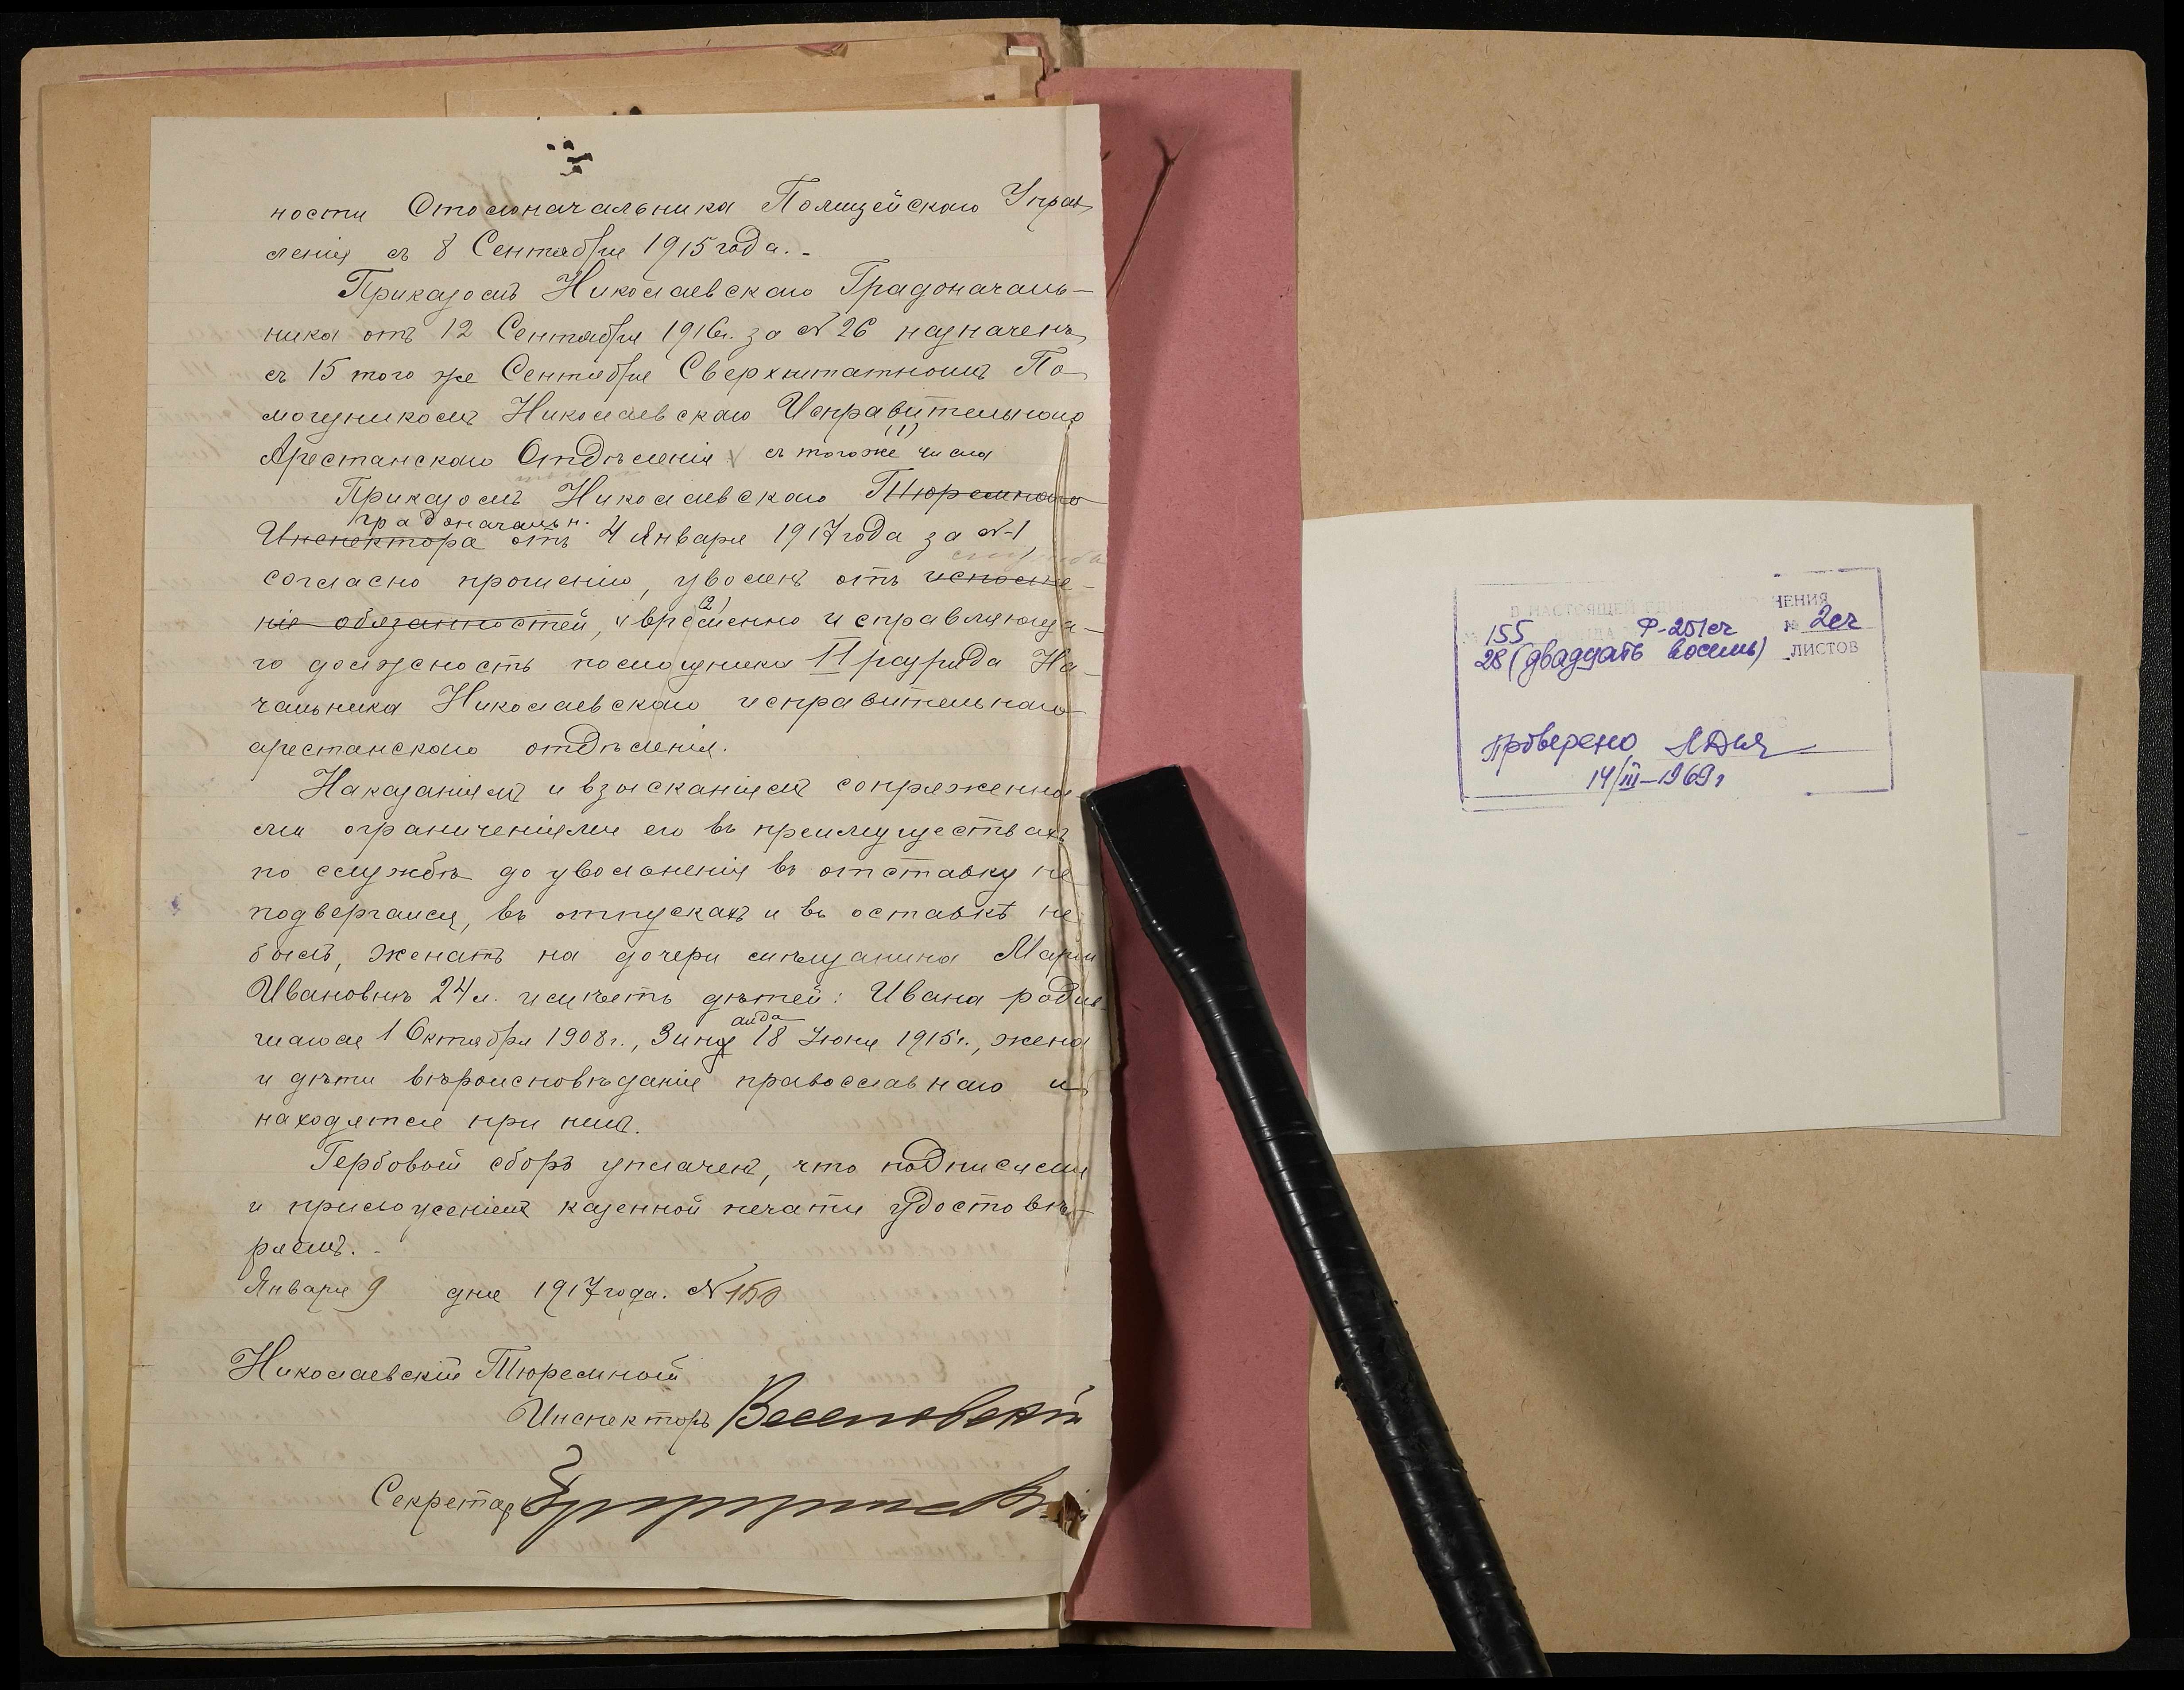 ности Столоначальника Полицейскаго Управ
ленія съ 8 Сентября 1915 года. -
Приказомъ Николаевскаго Градоначаль-
ника отъ 12 Сентября 1916г. за № 26 назначенъ
съ 15 того же Сентября Сверхштатнымъ По
мощникомъ Николаевскаго Исправительнаго
(1)
Арестанскаго Отдѣленія съ того же числа
Приказомъ Николаевскаго Тюремнаго
градоначальн.
Инспектора отъ 4 Января 1917 года за №1
согласно прошенію, уволенъ отъ исполне-
(2)
нія обязанностей, и временно исправляюща-
го должность помощника II разряда На-
чальника Николаевскаго исправительнаго
арестанскаго отдѣленія.
Наказаніямъ и взысканіямъ сопряженны-
ми ограниченіями его въ преимуществахъ
по службѣ до увольненія въ отставку не
подвергался, въ отпускахъ и въ оставкѣ не
былъ, женатъ на дочери мѣщанина Маріи
Ивановнѣ 24 л. имѣетъ дѣтей: Ивана родив
аида
шагося 1 Октября 1908г., Зину 18 Юоня 1915г., жена
и дѣти вѣроисповѣданія православнаго и
находятся при немъ.
Гербовый сборъ уплаченъ, что подписями
и приложеніемъ казенной печати удостовѣ-
ряемъ. -
Января 9 дня 1917 года. № 150
Николаевскій Тюремный
Инспекторъ
Секретарь
В НАСТОЯЩЕЙ ЕДИНИЦЕ ХРАНЕНИЯ
№ 155 Ф-251сч № 2сч
28 (двадцать восемь) ЛИСТОВ
Проверено
14/III-1969г